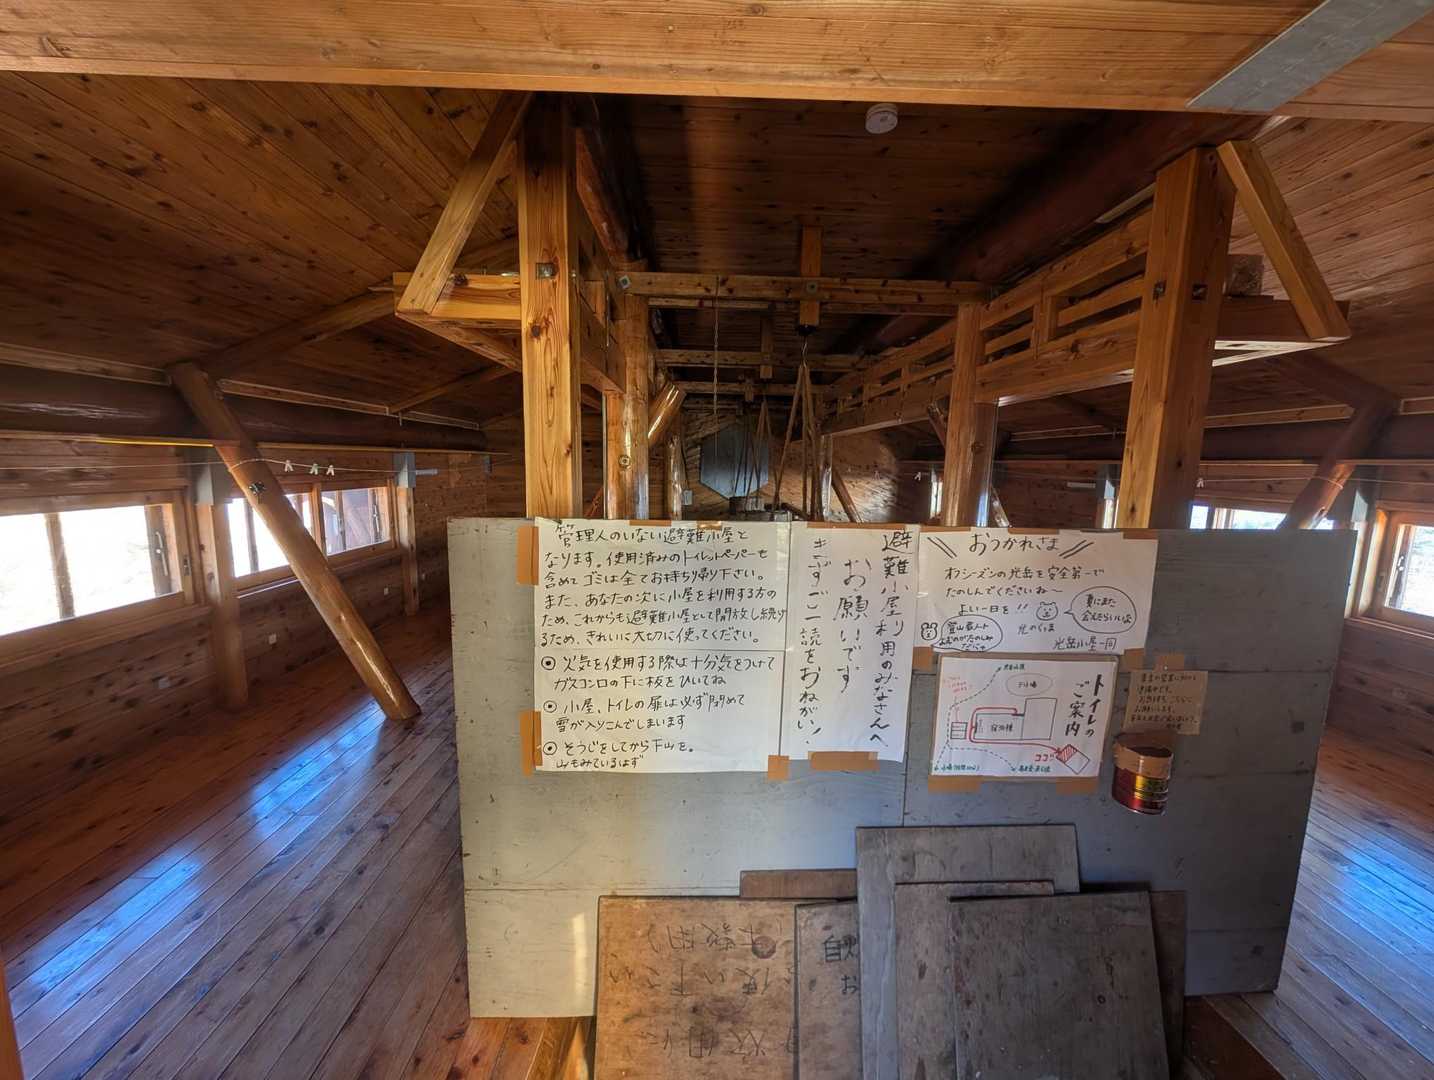 管理人のいない避難小屋と
なります。使用済みのトイレットペーパーも
含めてゴミは全てお持ち帰り下さい。
また、あなたの次に小屋を利用する方の
ため、これからも避難小屋として開放し続け
るため、きれいに大切に使ってください。
火気を使用する際は十分気をつけて
ガスコンロの下に板をひいてね
小屋、トイレの扉は必ず閉めて
雪が入りこんでしまいます
そうじをしてから下山を。
山もみているはず
避難小屋利用のみなさんへ
お願いです
必ずご一読をおねがい!
おつかれさま
オフシーズンの光岳を安全第一で
たのしんでくださいね〜
よい一日を!!
夏にまた
会えたらいいな
光のくま
光岳小屋一同
トイレの
ご案内
テント場
ココ
自炊
お